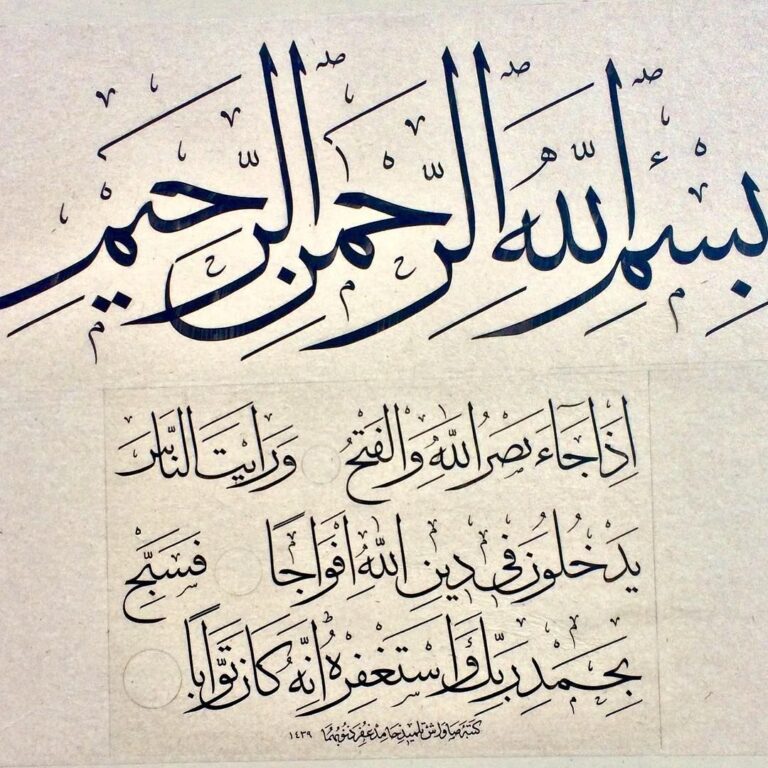 بِسْمِ اللّٰهِ الرَّحْمٰنِ الرَّحِيمِ
اِذَا جَاءَ نَصْرُ اللّٰهِ وَالْفَتْحُ وَرَاَيْتَ النَّاسَ
يَدْخُلُونَ فِى دِينِ اللّٰهِ اَفْوَاجًا فَسَبِّحْ
بِحَمْدِ رَبِّكَ وَاسْتَغْفِرْهُ اِنَّهُ كَانَ تَوَّابًا
كتبه صاواش تلميذ حامد غفر ذنوبهما ١٤٣٩